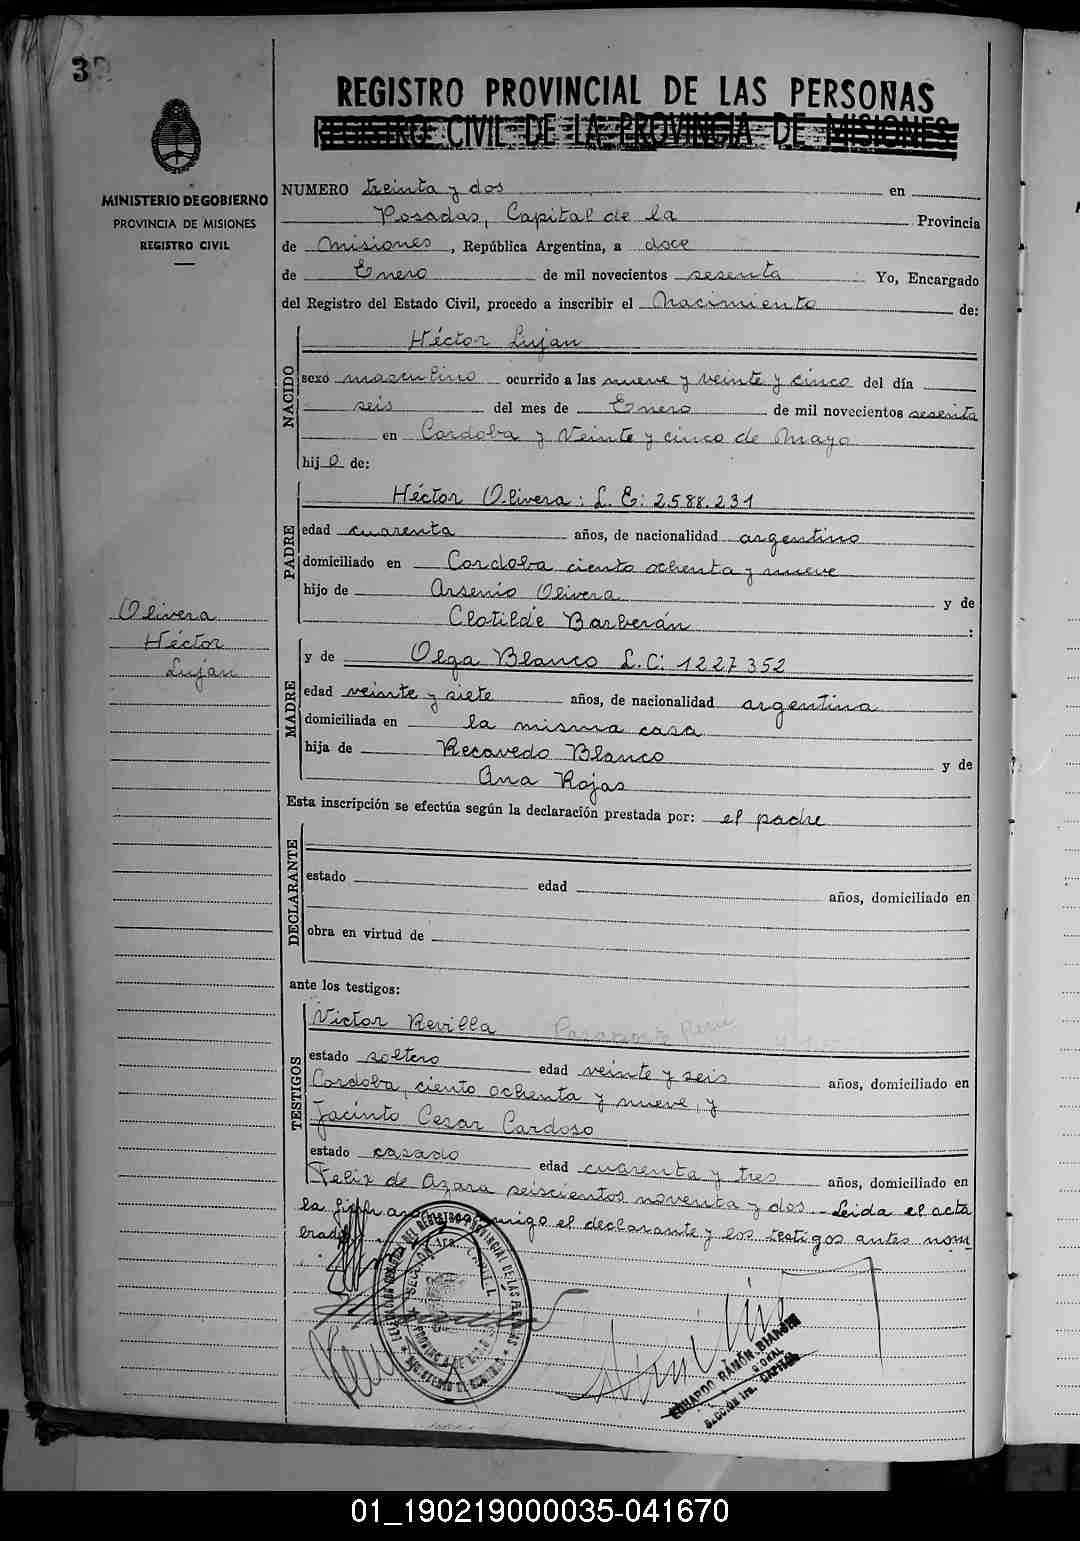 32
REGISTRO PROVINCIAL DE LAS PERSONAS
REGISTRO CIVIL DE LA PROVINCIA DE MISIONES
MINISTERIO DE GOBIERNO
PROVINCIA DE MISIONES
REGISTRO CIVIL
NUMERO treinta y dos en
Posadas, Capital de la Provincia
de Misiones, República Argentina, a doce
de Enero de mil novecientos sesenta Yo, Encargado
del Registro del Estado Civil, procedo a inscribir el Nacimiento de:
NACIDO
Héctor Luján
sexo masculino ocurrido a las nueve y veinte y cinco del día
seis del mes de Enero de mil novecientos sesenta
en Cordoba y Veinte y cinco de Mayo
hij o de:
PADRE
Héctor Olivera: L. E: 2588.231
edad cuarenta años, de nacionalidad argentino
domiciliado en Cordoba ciento ochenta y nueve
hijo de Arsenio Olivera y de
Clotilde Barberán :
Olivera
Héctor
Luján
MADRE
y de Olga Blanco L.C: 1227352
edad veinte y siete años, de nacionalidad argentina
domiciliada en la misma casa
hija de Recavedo Blanco y de
Ana Rojas
Esta inscripción se efectúa según la declaración prestada por: el padre
DECLARANTE
estado edad años, domiciliado en
obra en virtud de
ante los testigos:
TESTIGOS
Victor Revilla
estado soltero edad veinte y seis años, domiciliado en
Cordoba, ciento ochenta y nueve, y
Jacinto Cesar Cardoso
estado casado edad cuarenta y tres años, domiciliado en
Felix de Azara seiscientos noventa y dos.- Leida el acta
la conmigo el declarante y los testigos antes nom
brados.
EDUARDO RAMÓN BIANCHI
SECCIÓN 1ra. CAPITAL
01_190219000035-041670